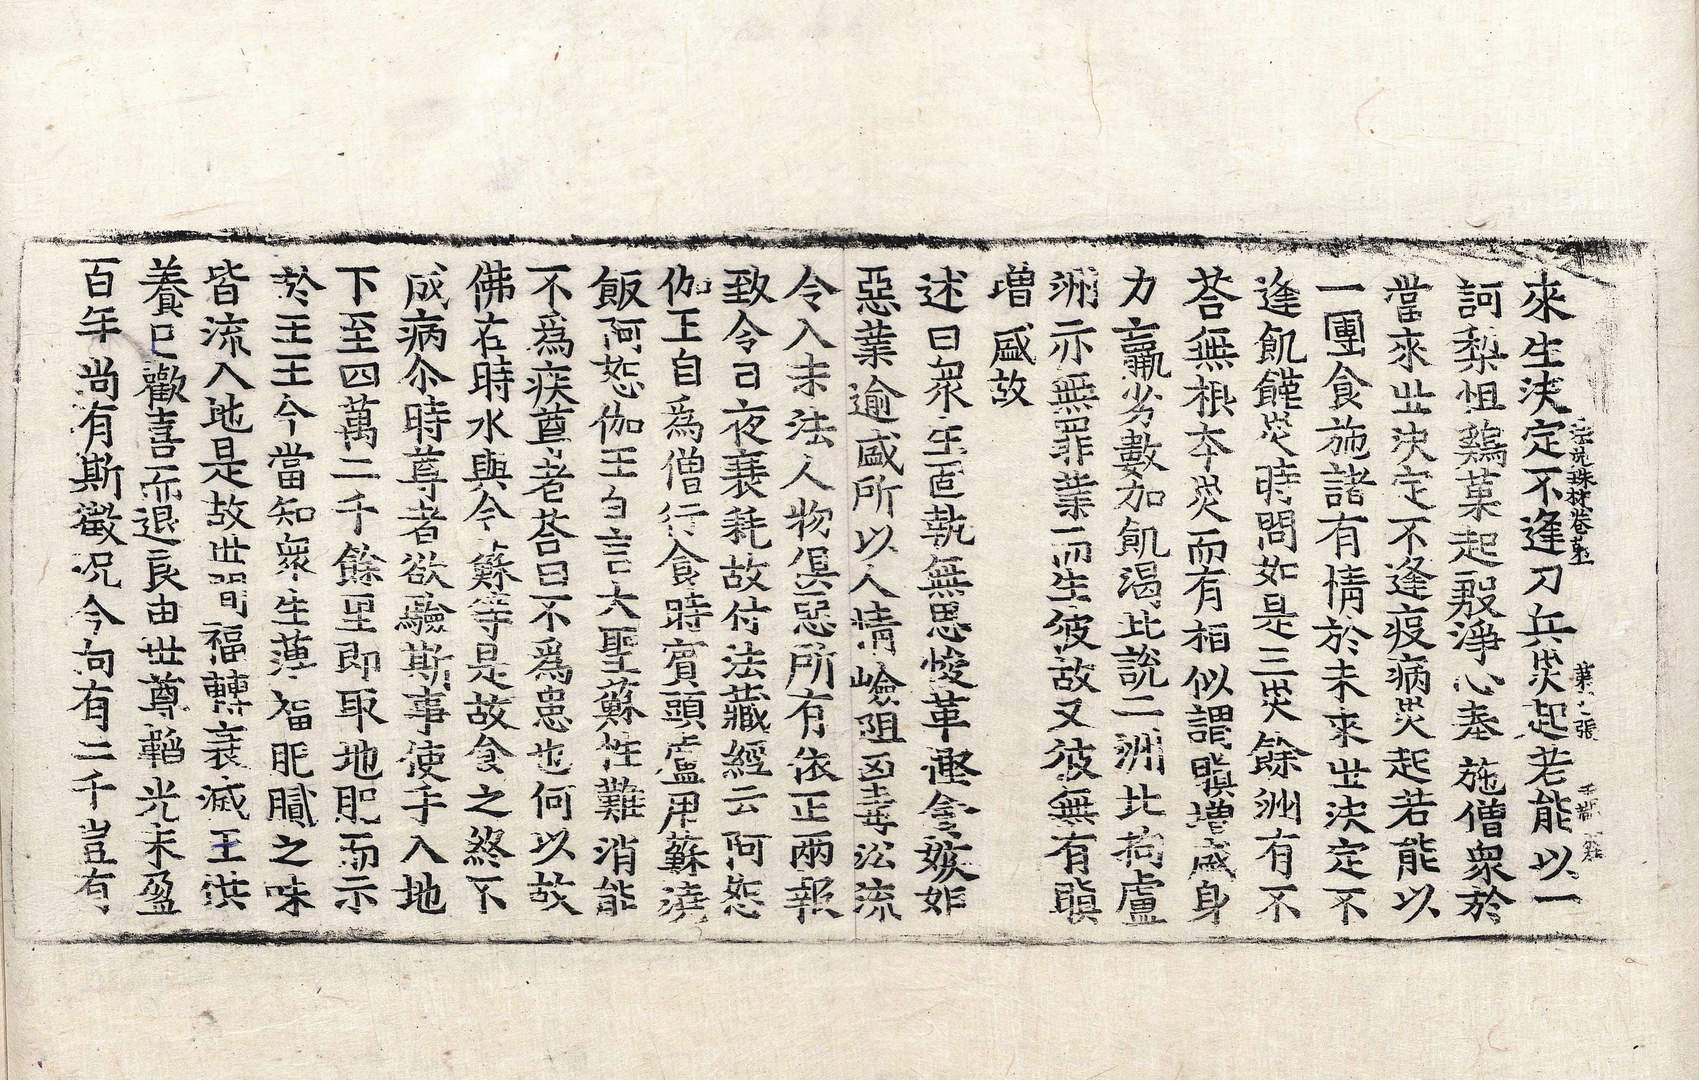 來生決定不逢刀兵災起若能以一
訶梨怛雞菓起殷淨心奉施僧衆於
當來世決定不逢疫病災起若能以
一團食施諸有情於未來世決定不
逢飢饉災時問如是三災餘洲有不
荅無根本災而有相似謂瞋增盛身
力羸劣數加飢渴此說二洲北拘盧
洲亦無罪業而生彼故又彼無有瞋
增盛故
述曰衆生固執無思悛革遂令嫉妒
惡業逾盛所以人情嶮阻凶毒訟流
令入末法人物俱惡所有依正兩報
致令日夜衰耗故付法藏經云阿恕
伽王自爲僧行食時賓頭盧用蘇澆
飯阿恕伽王白言大聖蘇性難消能
不爲疾尊者荅曰不爲患也何以故
佛在時水與今蘇等是故食之終不
成病尒時尊者欲驗斯事使手入地
下至四萬二千餘里即取地肥而示
於王王今當知衆生薄福肥膩之味
皆流入地是故世間福轉衰滅王供
養已歡喜而退良由世尊韜光未盈
百年尚有斯徵況今向有二千豈有